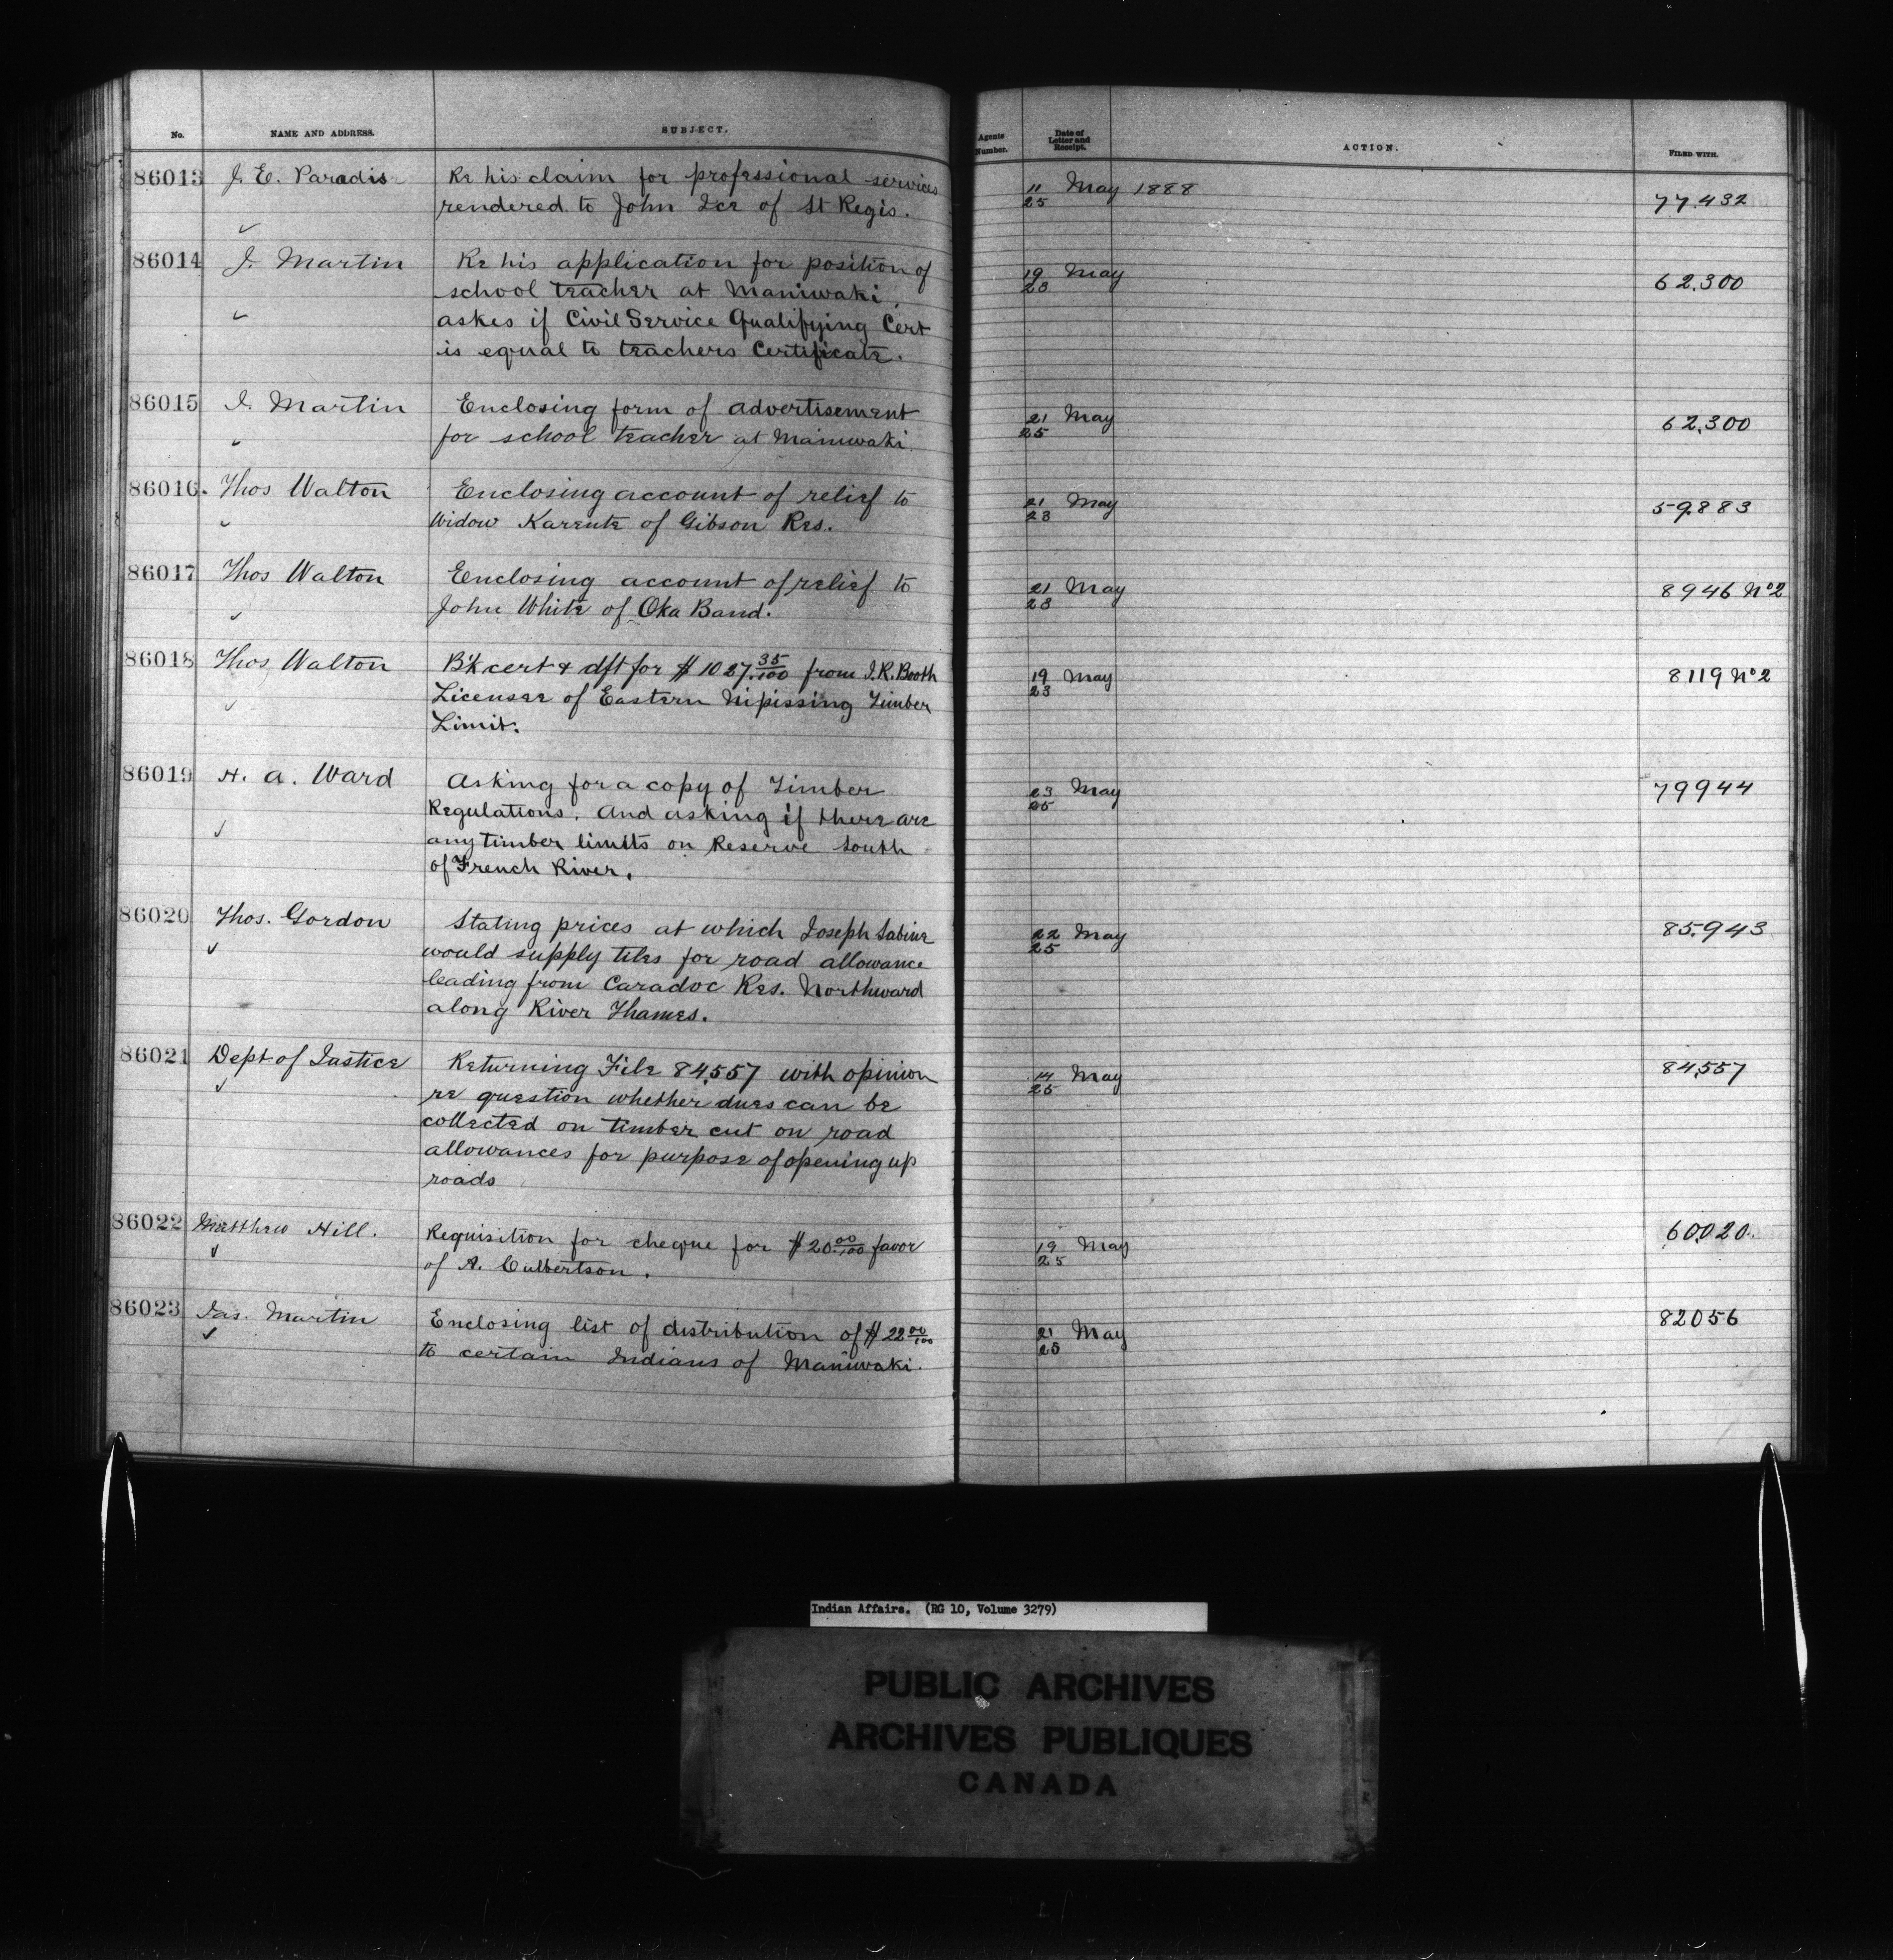 No. NAME AND ADDRESS. SUBJECT. Agents Number. Date of Letter and Receipt. ACTION. FILED WITH.
86013 J. E. Paradis Re his claim for professional services 11 May 1888 77.432
rendered to John Ice of St Regis. 25
86014 J. Martin Re his application for position of 19 May 62.300
school teacher at Maniwaki, 23
askes if Civil Service Qualifying Cert
is equal to teachers Certificate.
86015 J. Martin Enclosing form of advertisement 21 May 62.300
for school teacher at Maniwaki 25
86016. Thos Walton Enclosing account of relief to 21 May 59883
Widow Karente of Gibson Res. 23
86017 Thos Walton Enclosing account of relief to 21 May 8946 No 2
John White of Oka Band. 23
86018 Thos Walton B'k cert & dft for $1027.35/100 from J.R. Booth 19 May 8119 No 2
Licensee of Eastern Nipissing Timber 23
Limit.
86019 H. A. Ward Asking for a copy of Timber 23 May 79944
Regulations. And asking if there are 25
any timber limits on Reserve South
of French River.
86020 Thos. Gordon Stating prices at which Joseph Sabine 22 May 85.943
would supply tiles for road allowance 25
leading from Caradoc Res. Northward
along River Thames.
86021 Dept of Justice Returning File 84,557 with opinion 14 May 84,557
re question whether dues can be 25
collected on timber cut on road
allowances for purpose of opening up
roads
86022 Matthew Hill. Requisition for cheque for $20 00/100 favor 19 May 60,020.
of A. Culbertson. 25
86023 Jas. Martin Enclosing list of distribution of $22 00/100 21 May 82056
to certain Indians of Maniwaki. 25
Indian Affairs. (RG 10, Volume 3279)
PUBLIC ARCHIVES
ARCHIVES PUBLIQUES
CANADA